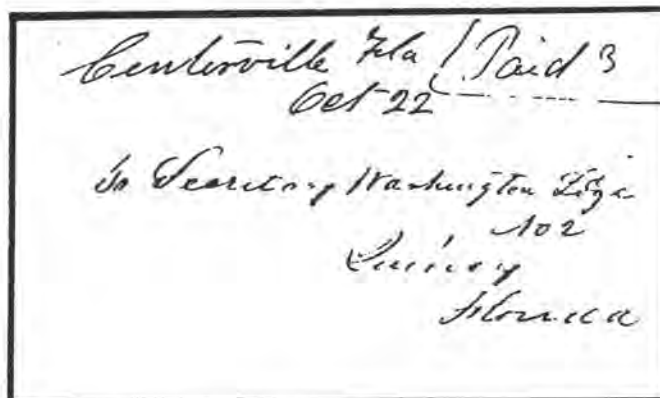 Centerville Fla Paid 3
Oct 22
To Secretary Washington Ldge
No 2
Quincy
Florida